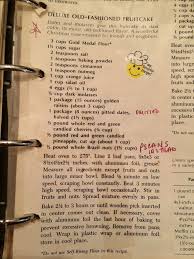 DELUXE OLD-FASHIONED FRUITCAKE
3 cups Gold Medal Flour*
1⅓ cups sugar
2 teaspoons salt
1 teaspoon baking powder
2 teaspoons cinnamon
1 teaspoon nutmeg
1 cup orange juice
1 cup salad oil
4 eggs
¼ cup dark molasses
1 package (15 ounces) golden
raisins (about 3 cups)
1 package (8 ounces) pitted dates, PITTED
½ pound whole red and green
candied cherries (1½ cups)
½ pound red and green candied
pineapple, cut up (about 1 cup)
½ pound whole Brazil nuts (1½ cups) PECANS INSTEAD
Heat oven to 275°. Line 2 loaf pans,
with aluminum foil, grease!
Measure all ingredients except fruits and
nuts into large mixer bowl. Blend ½ minute on low
speed, scraping bowl constantly. Beat 3 minutes
high speed, scraping bowl occasionally. Stir in
fruits and nuts. Spread mixture evenly in pans.
Bake 2½ to 3 hours or until wooden pick inserted
in center comes out clean. If necessary, cover
with aluminum foil the last hour of baking to
prevent excessive browning. Remove from pans;
cool. Wrap in plastic wrap or aluminum foil;
store in cool place.
*Do not use Self-Rising Flour in this recipe.